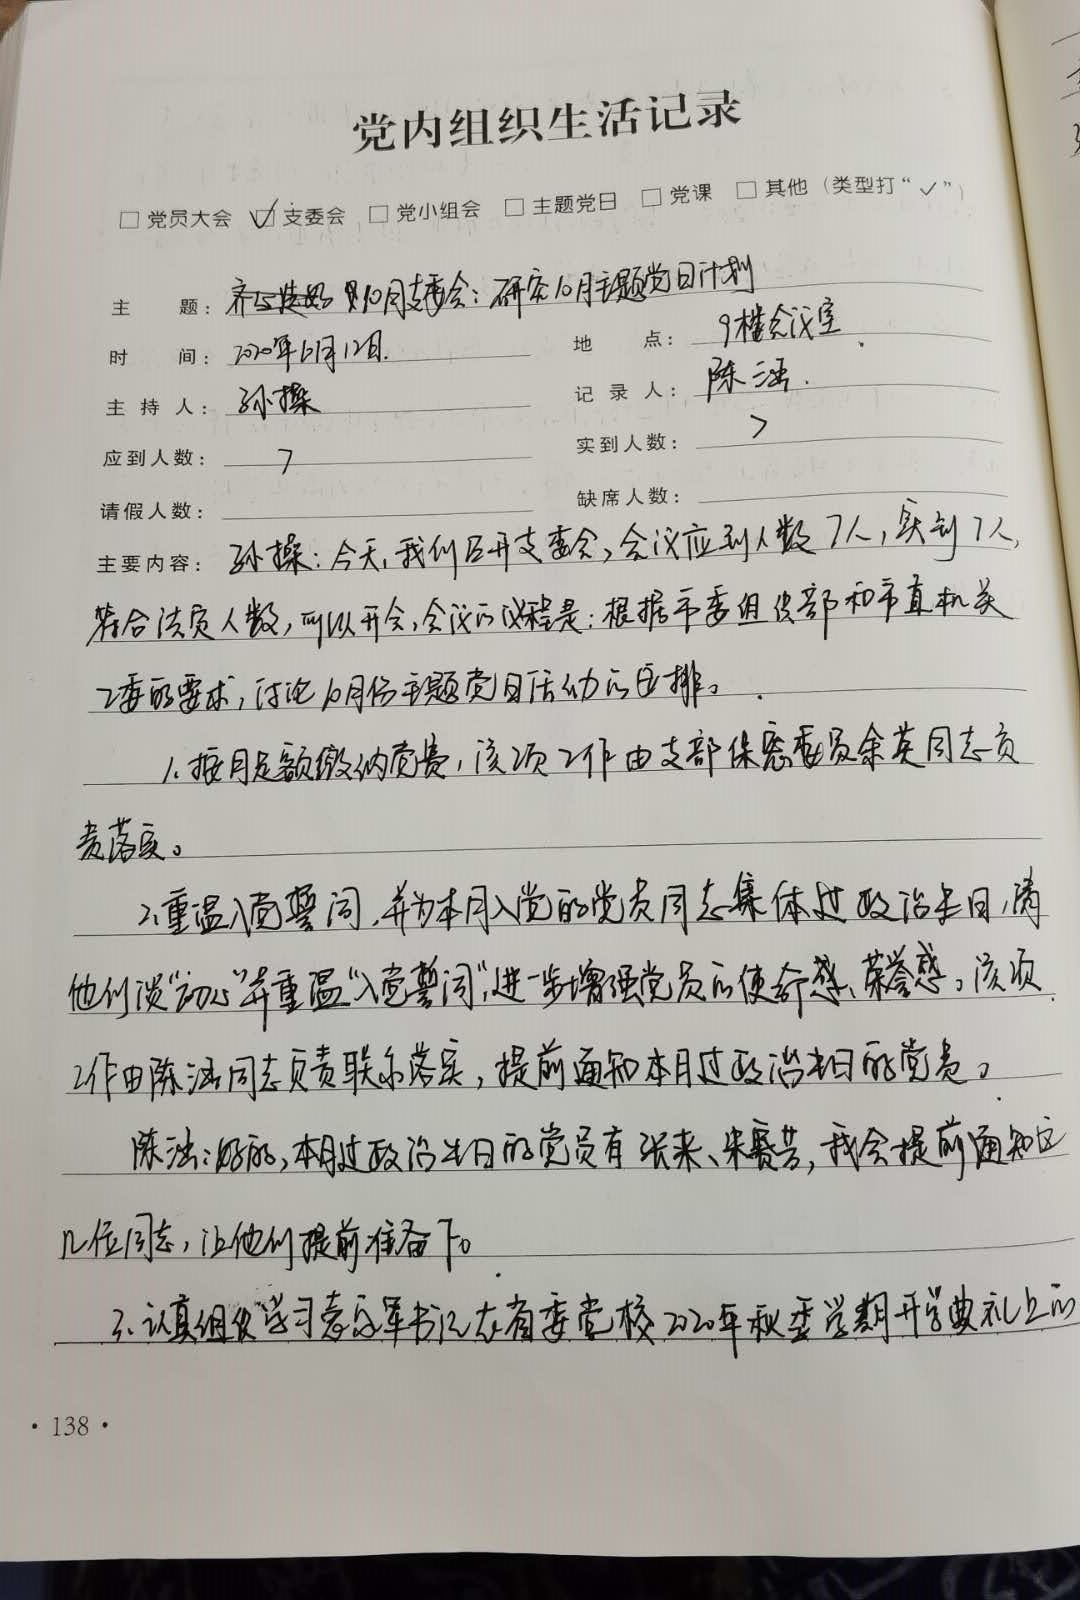 党内组织生活记录
□ 党员大会 ☑ 支委会 □ 党小组会 □ 主题党日 □ 党课 □ 其他（类型打“✓”）
主 题：10月支委会：研究10月主题党日计划
时 间：2020年10月12日. 地 点：9楼会议室.
主 持 人：孙操 记 录 人：陈涵.
应到人数：7 实到人数：7
请假人数： 缺席人数：
主要内容：孙操：今天，我们召开支委会，会议应到人数7人，实到7人，
符合法定人数，可以开会，会议的议程是：根据市委组织部和市直机关
工委的要求，讨论10月份主题党日活动的安排。
1、按月足额缴纳党费，该项工作由支部保密委员余英同志负
责落实。
2、重温入党誓词，并为本月入党的党员同志集体过政治生日，请
他们谈“初心”并重温“入党誓词”，进一步增强党员的使命感、荣誉感。该项
工作由陈涵同志负责联系落实，提前通知本月过政治生日的党员。
陈涵：好的，本月过政治生日的党员有张来、朱赛芸，我会提前通知这
几位同志，让他们提前准备下。
3、认真组织学习袁家军书记在省委党校2020年秋季学期开学典礼上的
·138·